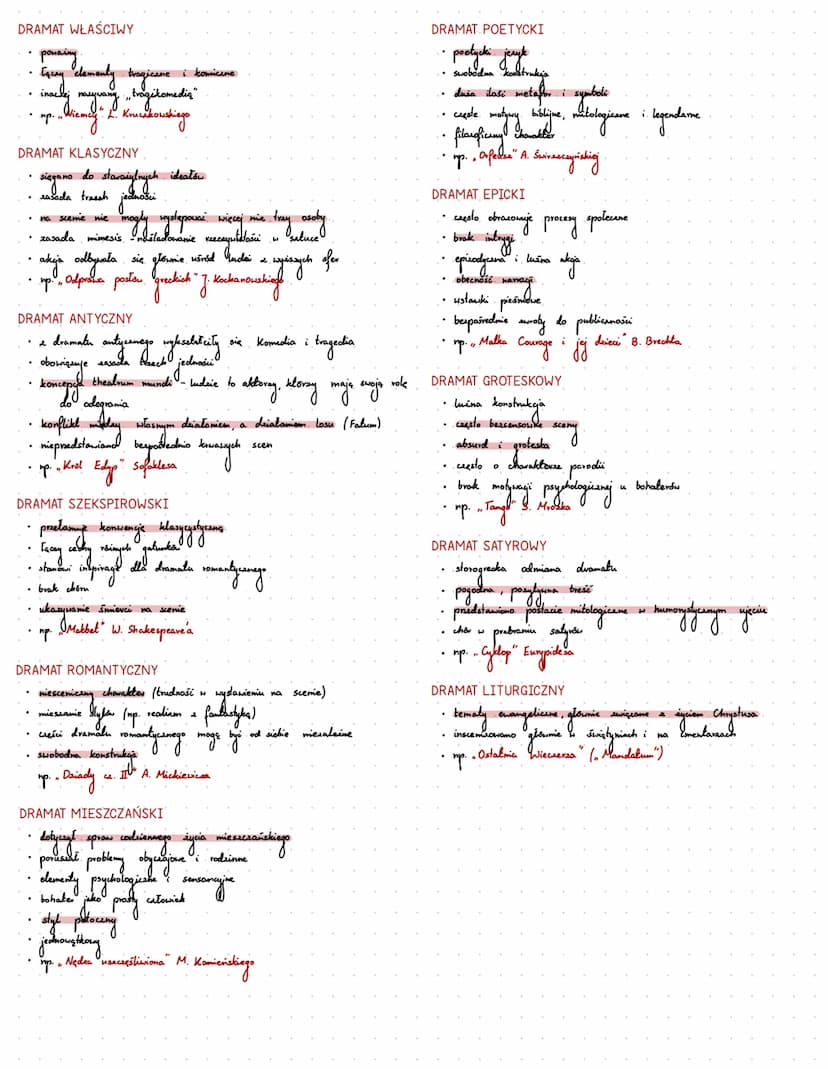 DRAMAT WŁAŚCIWY
• poważny
• łączy elementy tragiczne i komiczne
• inaczej nazywany „tragikomedią"
• np. „Niemcy" L. Kruczkowskiego
DRAMAT KLASYCZNY
• sięgano do starożytnych ideałów
• zasada trzech jedności
• na scenie nie mogły występować więcej niż trzy osoby
• zasada mimesis - naśladowanie rzeczywistości w sztuce
• akcja odbywała się głównie wśród ludzi z wyższych sfer
• np. „Odprawa posłów greckich" J. Kochanowskiego
DRAMAT ANTYCZNY
• z dramatu antycznego wykształciły się komedia i tragedia
• obowiązuje zasada trzech jedności
• koncepcja theatrum mundi - ludzie to aktorzy, którzy mają swoją rolę
do odegrania
• konflikt między własnym działaniem, a działaniem losu (Fatum)
• nieprzedstawiano bezpośrednio krwawych scen
• np. „Król Edyp" Sofoklesa
DRAMAT SZEKSPIROWSKI
• przełamuje konwencję klasycystyczną
• łączy cechy różnych gatunków
• stanowi inspirację dla dramatu romantycznego
• brak chóru
• ukazywanie śmierci na scenie
• np. „Makbet" W. Shakespeare'a
DRAMAT ROMANTYCZNY
• niesceniczny charakter (trudność w wystawieniu na scenie)
• mieszanie stylów (np. realizm z fantastyką)
• części dramatu romantycznego mogą być od siebie niezależne
• swobodna konstrukcja
np. „Dziady cz. II" A. Mickiewicza
DRAMAT MIESZCZAŃSKI
• dotyczył spraw codziennego życia mieszczańskiego
• poruszał problemy obyczajowe i rodzinne
• elementy psychologiczne i sensacyjne
• bohater jako prosty człowiek
• styl potoczny
• jednowątkowy
• np. „Nędza uszczęśliwiona" M. Kamieńskiego
DRAMAT POETYCKI
• poetycki język
• swobodna konstrukcja
• duża ilość metafor i symboli
• częste motywy biblijne, mitologiczne i legendarne
• filozoficzny charakter
• np. „Orfeusz" A. Świrszczyńskiej
DRAMAT EPICKI
• często obrazuje procesy społeczne
• brak intrygi
• epizodyczna i luźna akcja
• obecność narracji
• wstawki pieśniowe
• bezpośrednie zwroty do publiczności
• np. „Matka Courage i jej dzieci" B. Brechta
DRAMAT GROTESKOWY
• luźna konstrukcja
• często bezsensowne sceny
• absurd i groteska
• często o charakterze parodii
• brak motywacji psychologicznej u bohaterów
• np. „Tango" S. Mrożka
DRAMAT SATYROWY
• starogrecka odmiana dramatu
• pogodna, pozytywna treść
• przedstawiano postacie mitologiczne w humorystycznym ujęciu
• chór w przebraniu satyrów
• np. „Cyklop" Eurypidesa
DRAMAT LITURGICZNY
• tematy ewangeliczne, głównie związane z życiem Chrystusa
• inscenizowano głównie w świątyniach i na cmentarzach
• np. „Ostatnia Wieczerza" („Mandatum")